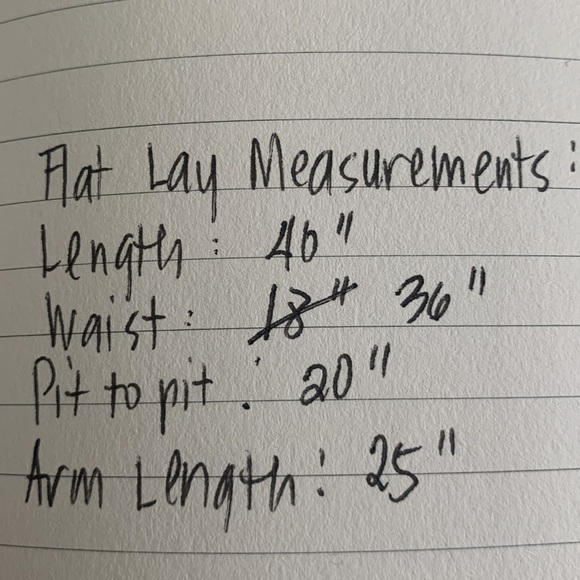 Flat Lay Measurements:
Length: 40"
Waist: 18" 36"
Pit to pit: 20"
Arm Length: 25"